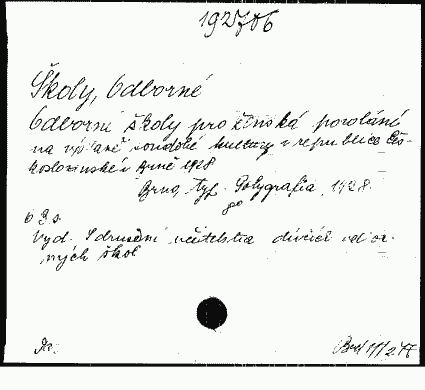 Školy, Odborné
Odborné školy pro ženská povolání
na výstavě soudobé kultury v republice Čes-
koslovenské v Brně 1928
Brno, typ. Polygrafia, 1928.
63 s
Vyd. Sdružení učitelstva dívčích odbor-
ných škol